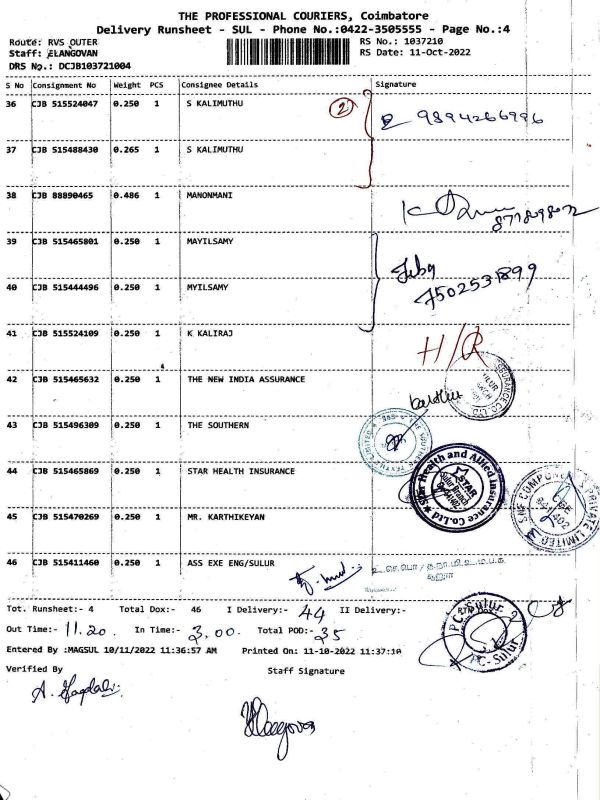 THE PROFESSIONAL COURIERS, Coimbatore
Delivery Runsheet - SUL - Phone No.:0422-3505555 - Page No.:4
Route: RVS OUTER RS No.: 1037210
Staff: ELANGOVAN RS Date: 11-Oct-2022
DRS No.: DCJB103721004
S No Consignment No Weight PCS Consignee Details Signature
36 CJB 515524047 0.250 1 S KALIMUTHU 2 9894266996
37 CJB 515488430 0.265 1 S KALIMUTHU
38 CJB 88890465 0.486 1 MANONMANI
39 CJB 515465801 0.250 1 MAYILSAMY
40 CJB 515444496 0.250 1 MYILSAMY 7502531899
41 CJB 515524109 0.250 1 K KALIRAJ H/R
42 CJB 515465632 0.250 1 THE NEW INDIA ASSURANCE
43 CJB 515496309 0.250 1 THE SOUTHERN
44 CJB 515465869 0.250 1 STAR HEALTH INSURANCE
Star Health and Allied Insurance Co.Ltd
STAR
Sulur Branch
45 CJB 515470269 0.250 1 MR. KARTHIKEYAN
46 CJB 515411460 0.250 1 ASS EXE ENG/SULUR
Tot. Runsheet:- 4 Total Dox:- 46 I Delivery:- 44 II Delivery:-
Out Time:- 11.20. In Time:- 3.00. Total POD:- 35
PC-Sulur
PC-Sulur
Entered By :MAGSUL 10/11/2022 11:36:57 AM Printed On: 11-10-2022 11:37:10
Verified By Staff Signature